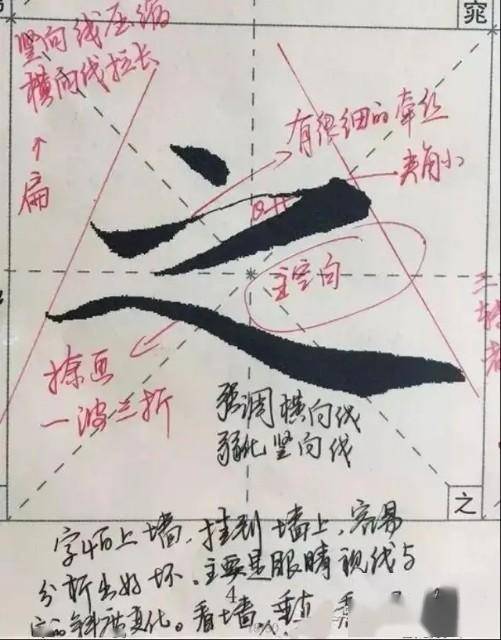 窕
竖向线压缩
横向线拉长
扁
有很细的牵丝
夹角小
之
主空间
捺画
一波三折
强调横向线
弱化竖向线
之
字帖上墙,挂到墙上,容易
分析出好坏。主要是眼睛视线与
变化。看墙,垂直
4